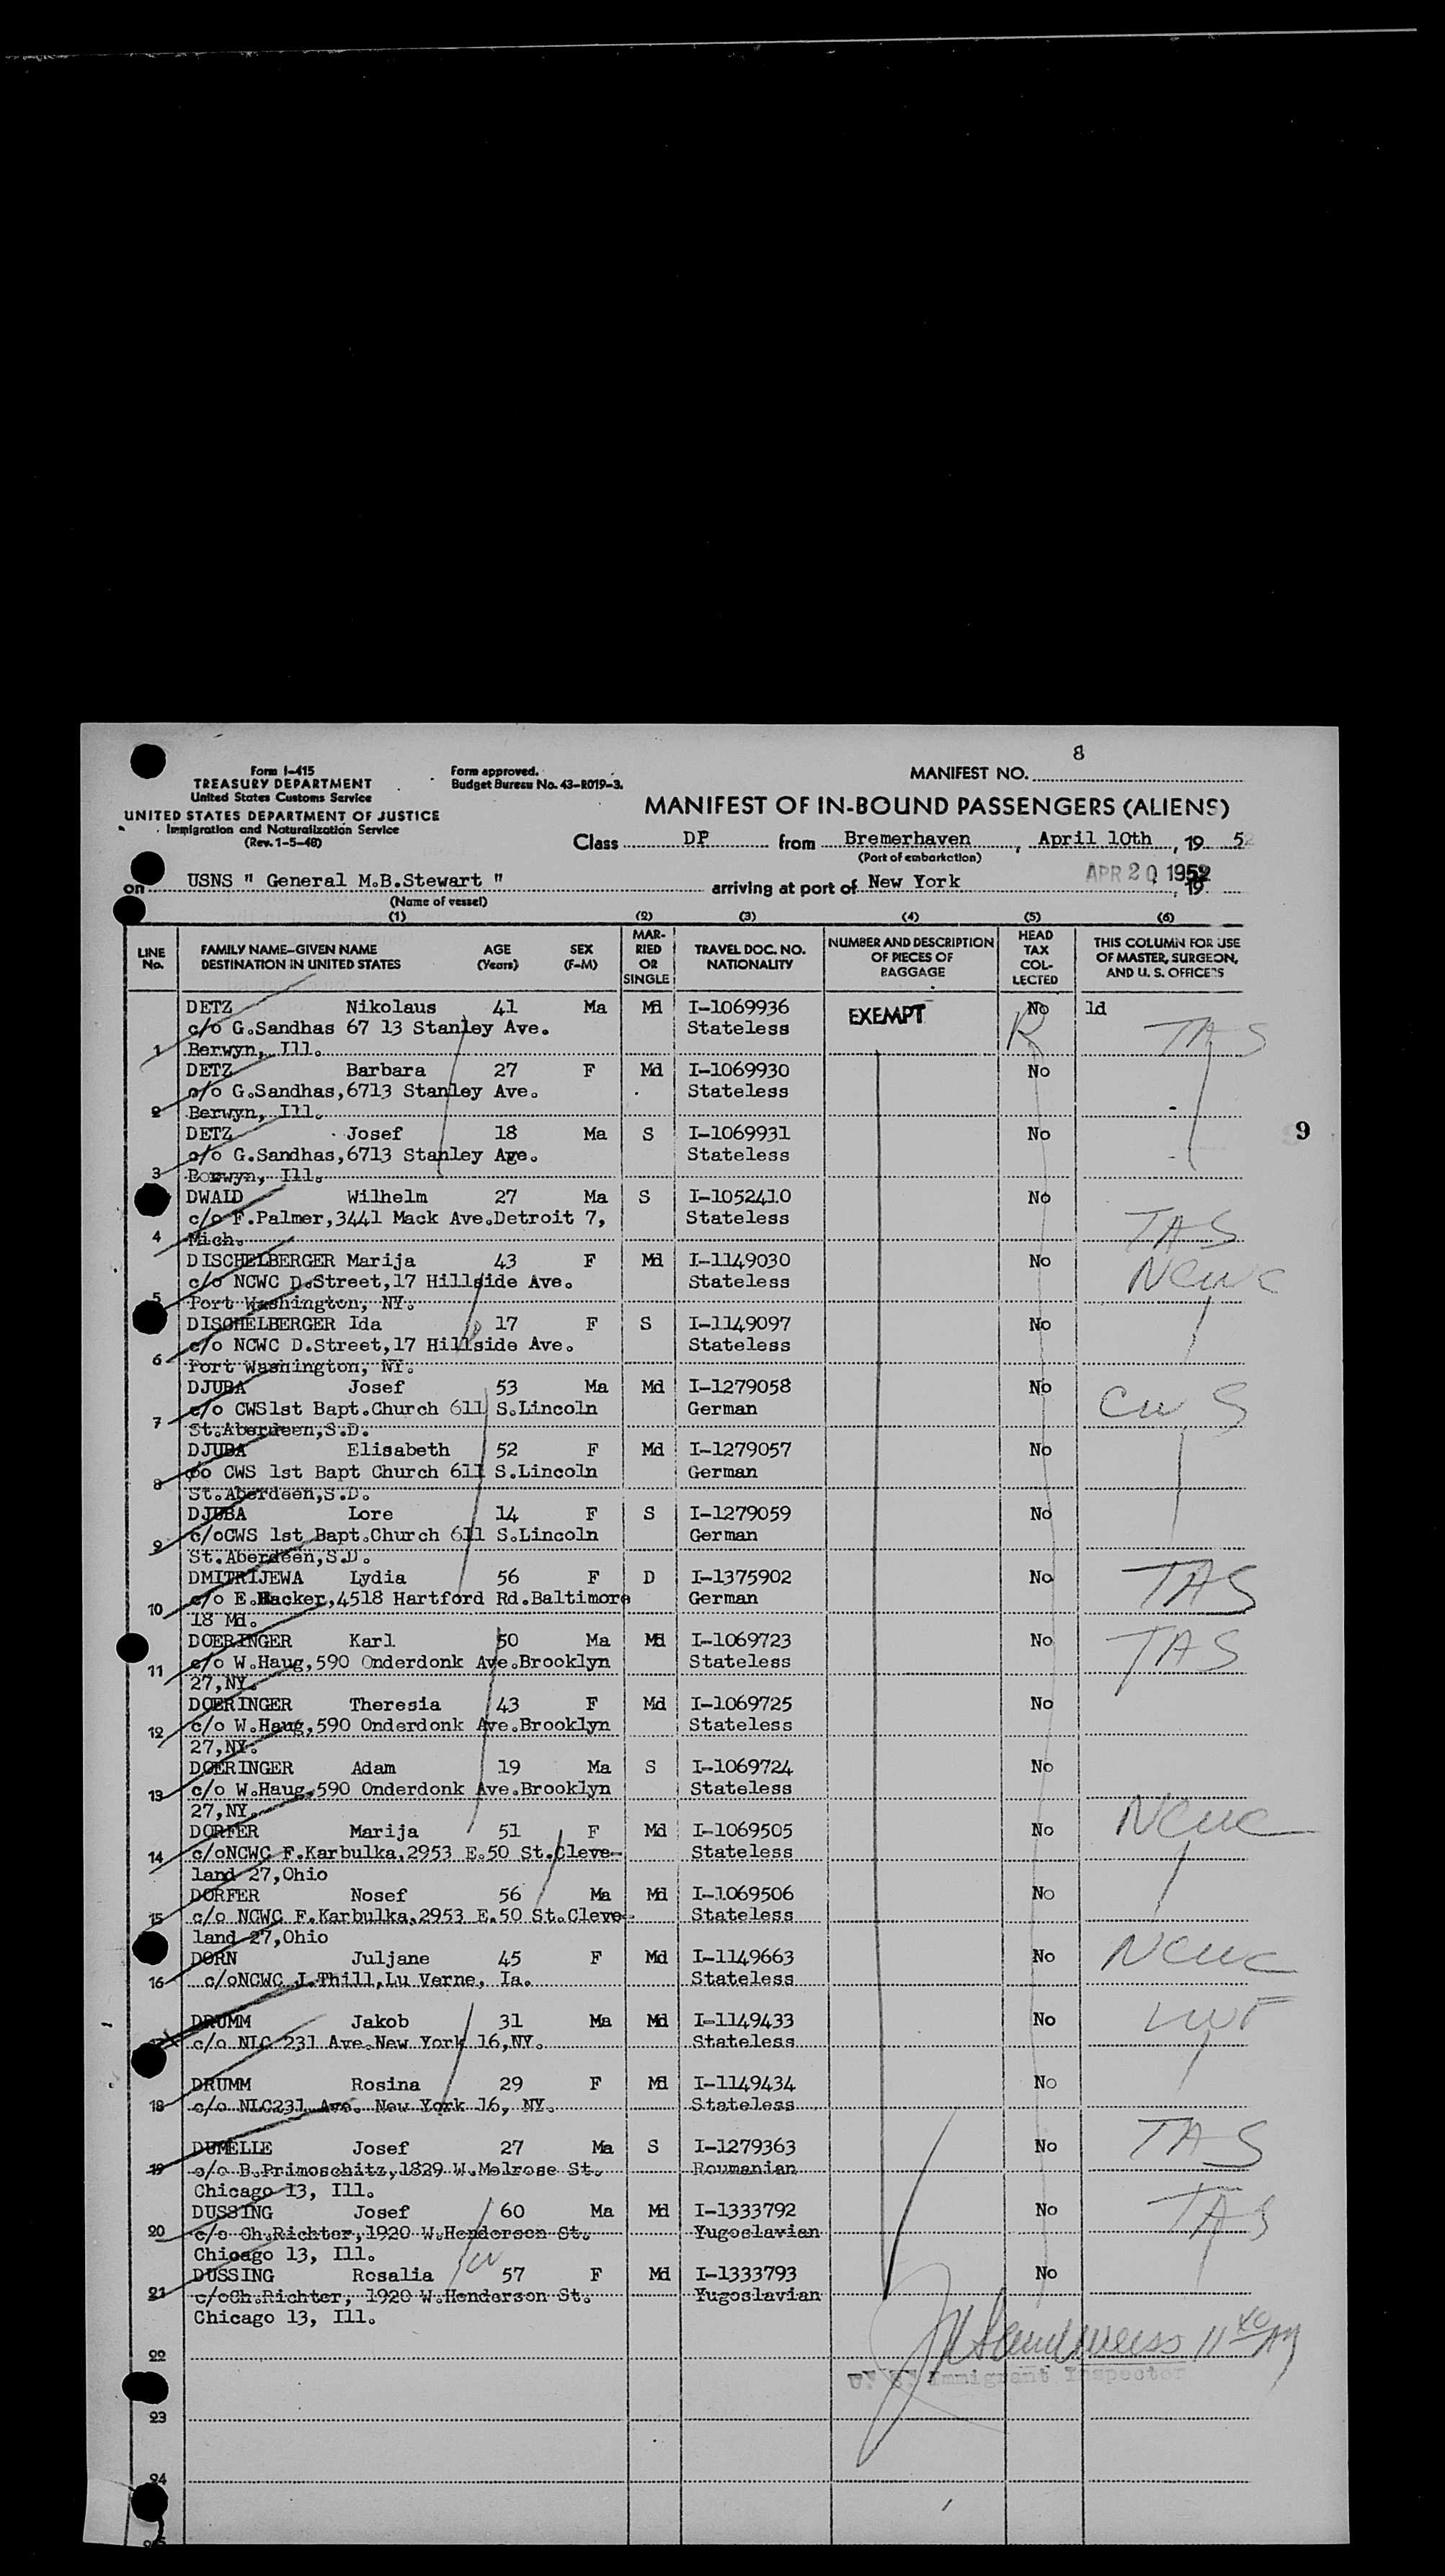 8
Form I-415
TREASURY DEPARTMENT
United States Customs Service
UNITED STATES DEPARTMENT OF JUSTICE
Immigration and Naturalization Service
(Rev. 1-5-48)
Form approved.
Budget Bureau No. 43-R019-3.
MANIFEST NO.
MANIFEST OF IN-BOUND PASSENGERS (ALIENS)
Class DP from Bremerhaven, April 10th, 19 52
(Port of embarkation)
on USNS " General M.B.Stewart " arriving at port of New York APR 20 1952, 19
(Name of vessel)
(1) (2) (3) (4) (5) (6)
LINE No. FAMILY NAME–GIVEN NAME DESTINATION IN UNITED STATES AGE (Years) SEX (F–M) MARRIED OR SINGLE TRAVEL DOC. NO. NATIONALITY NUMBER AND DESCRIPTION OF PIECES OF BAGGAGE HEAD TAX COLLECTED THIS COLUMN FOR USE OF MASTER, SURGEON, AND U. S. OFFICERS
DETZ Nikolaus 41 Ma Md I-1069936 EXEMPT No ld
c/o G.Sandhas 67 13 Stanley Ave. Stateless R TAS
1 Berwyn, Ill.
DETZ Barbara 27 F Md I-1069930 No
c/o G.Sandhas,6713 Stanley Ave. Stateless
2 Berwyn, Ill.
DETZ Josef 18 Ma S I-1069931 No 9
c/o G.Sandhas,6713 Stanley Age. Stateless
3 Berwyn, Ill.
DWALD Wilhelm 27 Ma S I-1052410 No
c/o F.Palmer,3441 Mack Ave.Detroit 7, Stateless TAS
4 Mich.
DISCHELBERGER Marija 43 F Md I-1149030 No NCWC
c/o NCWC D.Street,17 Hillside Ave. Stateless
5 Port Washington, NY.
DISCHELBERGER Ida 17 F S I-1149097 No
c/o NCWC D.Street,17 Hillside Ave. Stateless
6 Port Washington, NY.
DJUBA Josef 53 Ma Md I-1279058 No CWS
7 c/o CWS1st Bapt.Church 611 S.Lincoln German
St.Aberdeen,S.D.
DJUBA Elisabeth 52 F Md I-1279057 No
8 c/o CWS 1st Bapt Church 611 S.Lincoln German
St.Aberdeen,S.D.
DJUBA Lore 14 F S I-1279059 No
9 c/oCWS 1st Bapt.Church 611 S.Lincoln German
St.Aberdeen,S.D.
DMITRIJEWA Lydia 56 F D I-1375902 No TAS
10 c/o E.Hacker,4518 Hartford Rd.Baltimore German
18 Md.
DOERINGER Karl 50 Ma Md I-1069723 No TAS
11 c/o W.Haug,590 Onderdonk Ave.Brooklyn Stateless
27,NY.
DOERINGER Theresia 43 F Md I-1069725 No
12 c/o W.Haug,590 Onderdonk Ave.Brooklyn Stateless
27,NY.
DOERINGER Adam 19 Ma S I-1069724 No
13 c/o W.Haug,590 Onderdonk Ave.Brooklyn Stateless
27,NY.
DORFER Marija 51 F Md I-1069505 No NCWC
14 c/oNCWC F.Karbulka,2953 E.50 St.Cleve- Stateless
land 27,Ohio
DORFER Nosef 56 Ma Md I-1069506 No
15 c/o NCWC F.Karbulka,2953 E.50 St.Cleve- Stateless
land 27,Ohio
DORN Juljane 45 F Md I-1149663 No NCWC
16 c/oNCWC J.Thill,Lu Verne, Ia. Stateless
DRUMM Jakob 31 Ma Md I-1149433 No LWF
17 c/o NLC 231 Ave.New York 16,NY. Stateless
DRUMM Rosina 29 F Md I-1149434 No
18 c/o NLC231 Ave. New York 16, NY. Stateless
DUMELLE Josef 27 Ma S I-1279363 No TAS
19 c/o B.Primoschitz,1829 W.Melrose St. Roumanian
Chicago 13, Ill.
DUSSING Josef 60 Ma Md I-1333792 No TAS
20 c/o Ch.Richter,1920 W.Henderson St. Yugoslavian
Chicago 13, Ill.
DUSSING Rosalia 57 F Md I-1333793 No
21 c/oCh.Richter, 1920 W.Henderson St. Yugoslavian
Chicago 13, Ill.
22 Sandweiss 11 40 AM
U. S. Immigrant Inspector
23
24